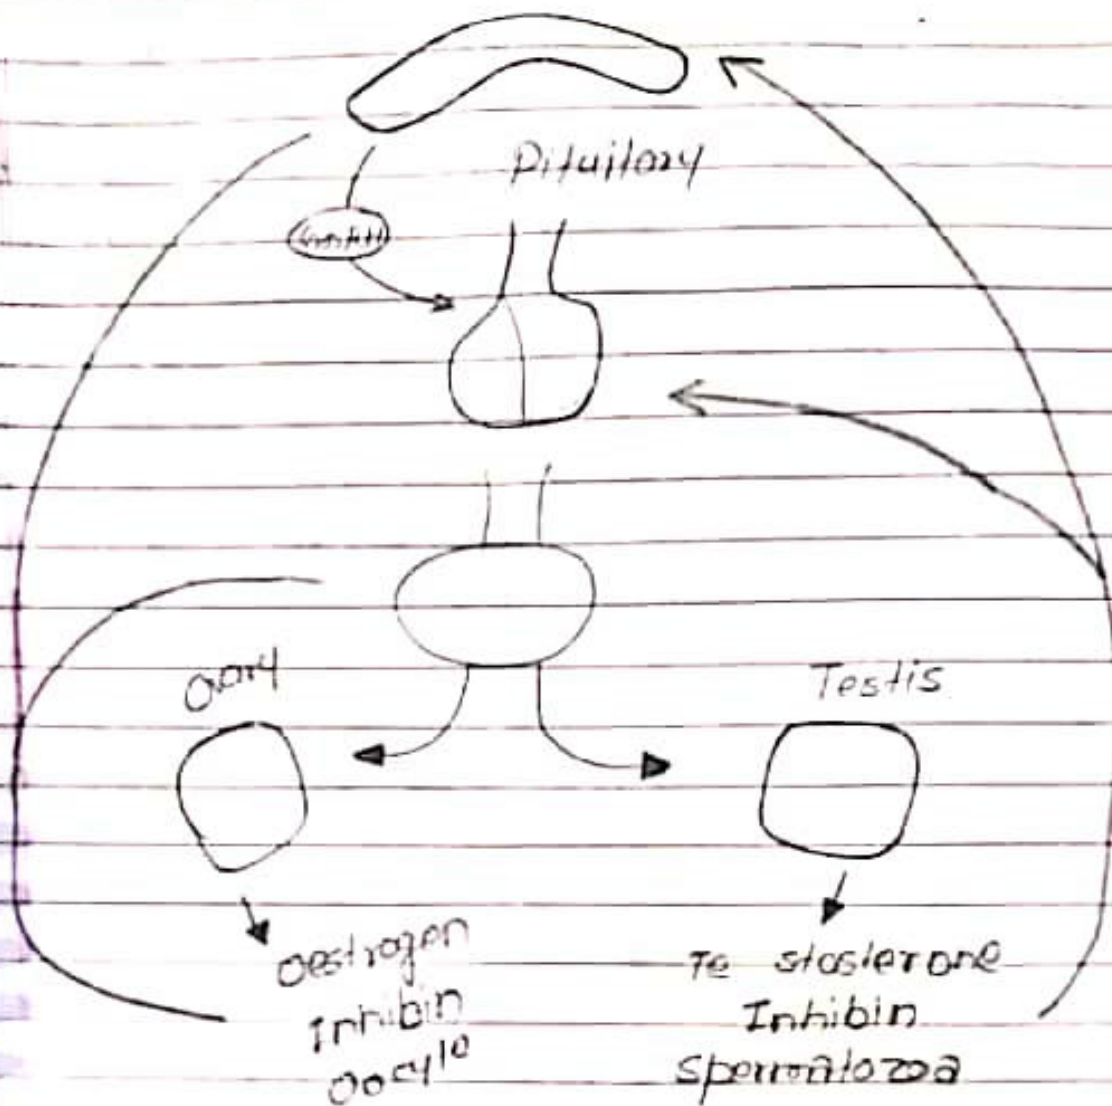 Pituitary
Ovary
Testis
Oestrogen
Inhibin
Te stosterone
Inhibin
Spermatozoa